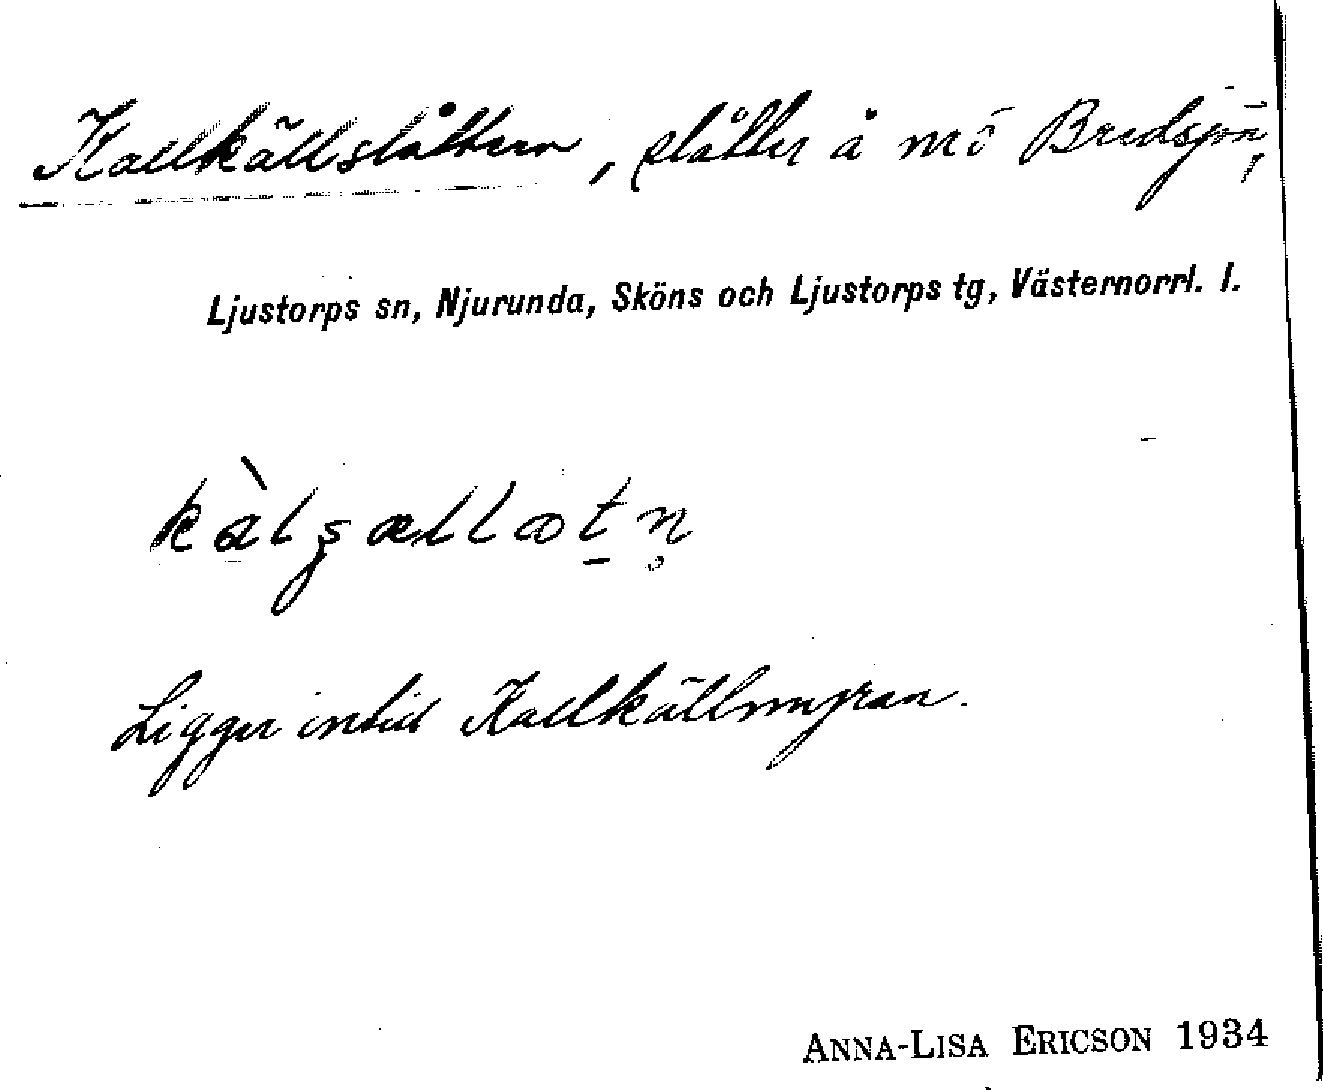 Kallkällslåttern, slåtter å mö Bredsjön,
Ljustorps sn, Njurunda, Sköns och Ljustorps tg, Västernorrl. l.
Ligger intill Kallkällmyran.
ANNA-LISA ERICSON 1934